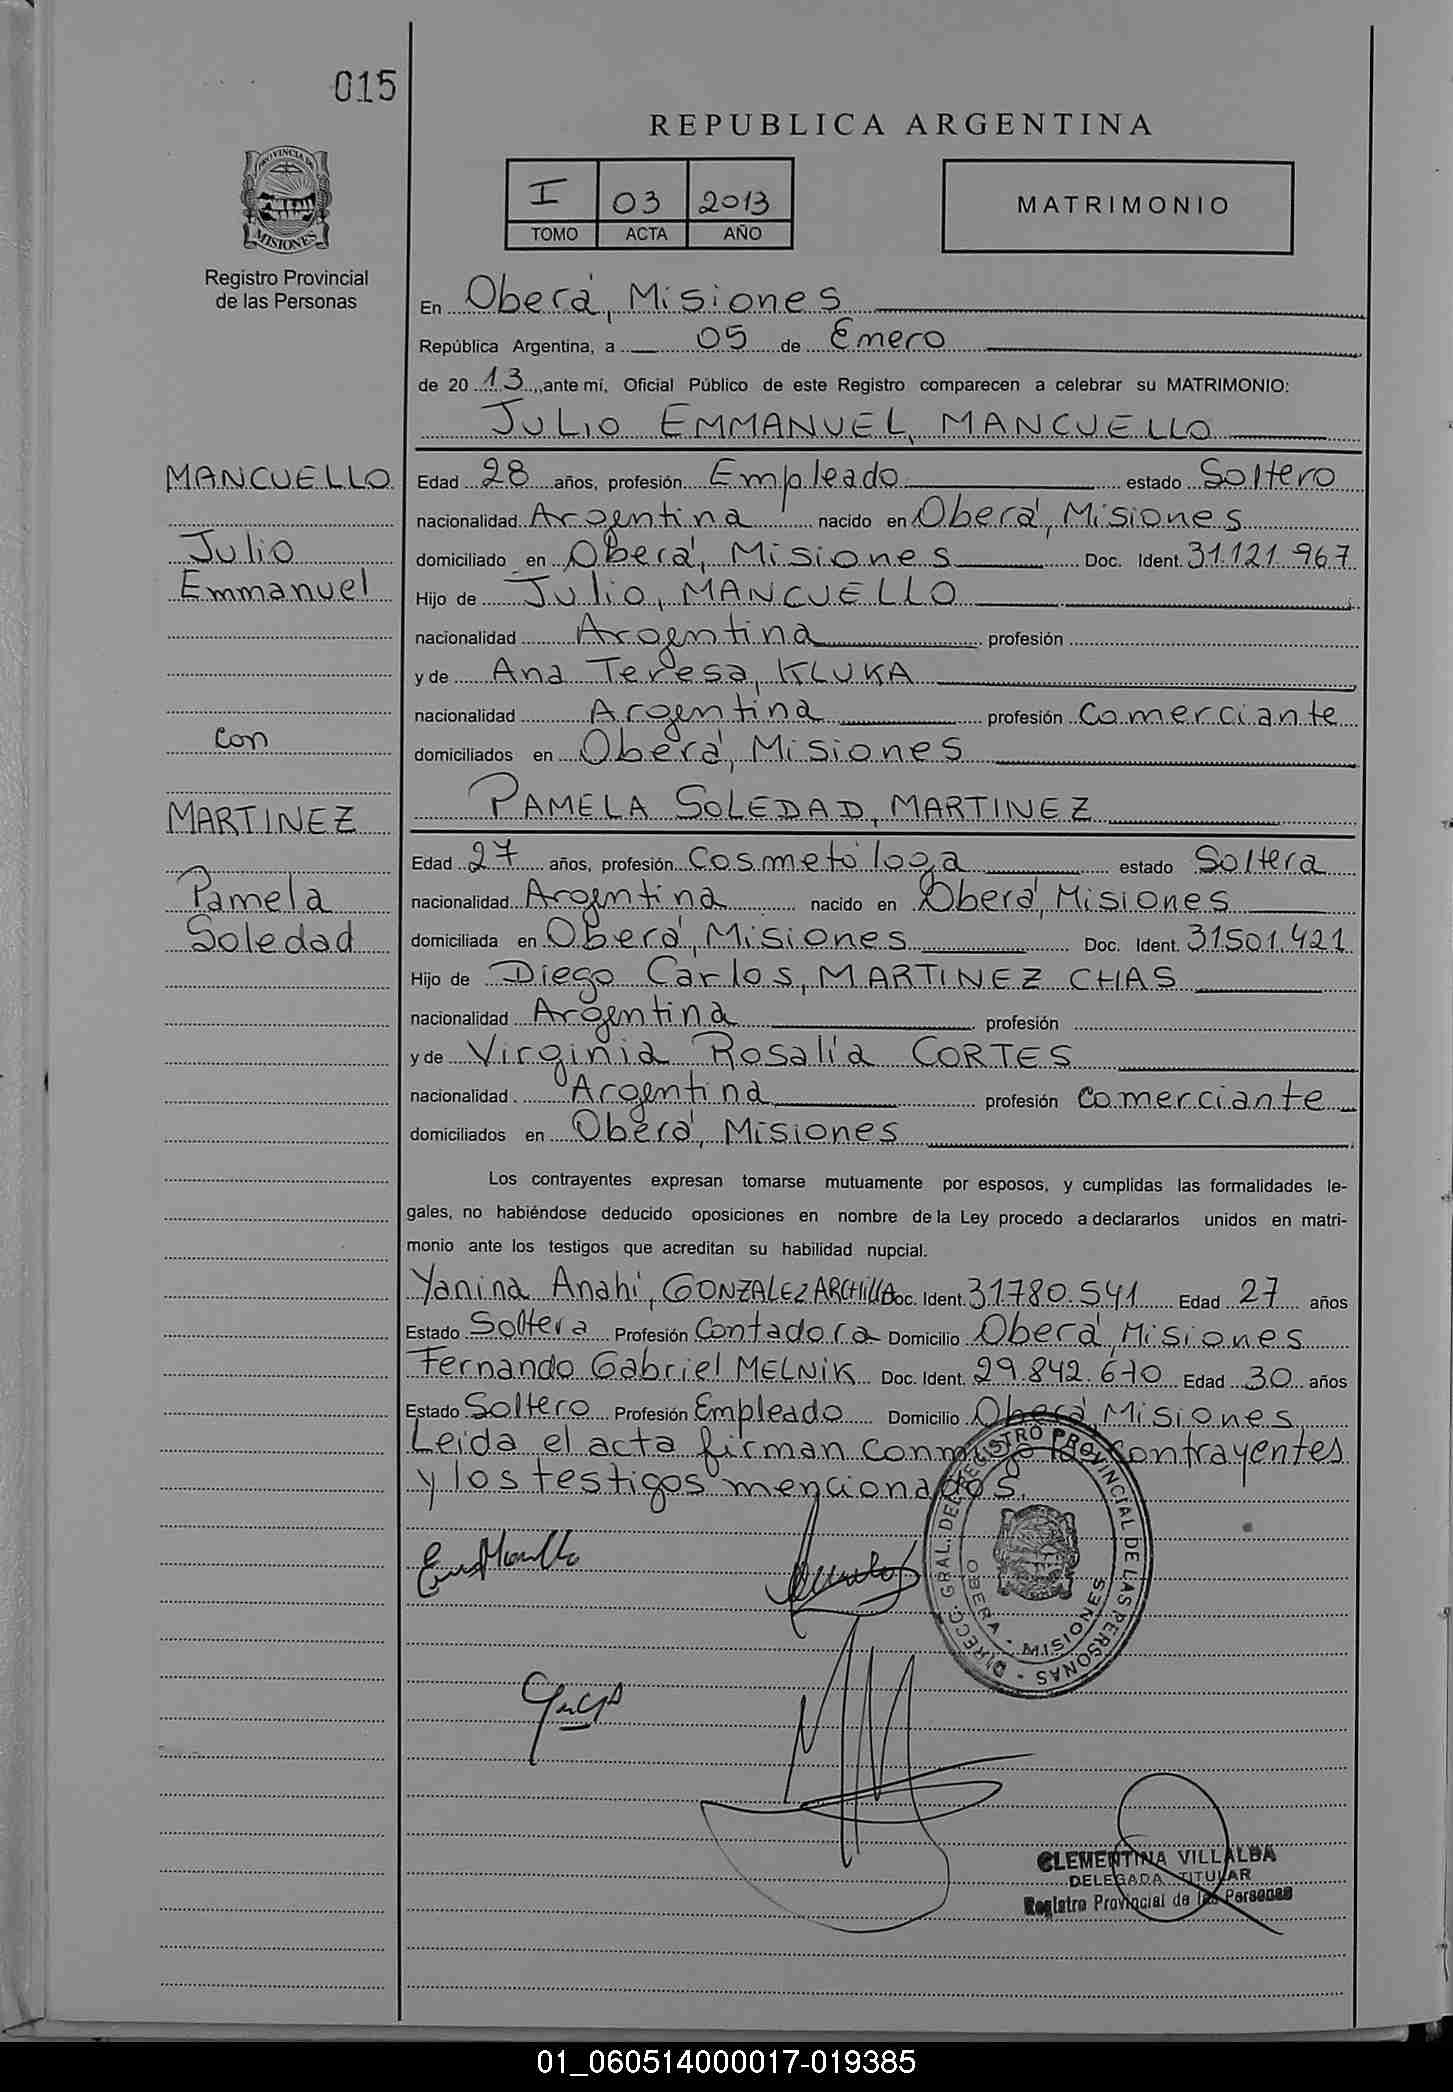 015
REPUBLICA ARGENTINA
PROVINCIA DE
MISIONES
Registro Provincial
de las Personas
I 03 2013
TOMO ACTA AÑO
MATRIMONIO
En Oberá, Misiones
República Argentina, a 05 de Enero
de 20 13, ante mí, Oficial Público de este Registro comparecen a celebrar su MATRIMONIO:
JULIO EMMANUEL, MANCUELLO
MANCUELLO
Julio
Emmanuel
con
MARTINEZ
Pamela
Soledad
Edad 28 años, profesión Empleado estado Soltero
nacionalidad Argentina nacido en Oberá, Misiones
domiciliado en Oberá, Misiones Doc. Ident. 31.121.967
Hijo de Julio, MANCUELLO
nacionalidad Argentina profesión
y de Ana Teresa, KLUKA
nacionalidad Argentina profesión Comerciante
domiciliados en Oberá, Misiones
PAMELA SOLEDAD, MARTINEZ
Edad 27 años, profesión Cosmetóloga estado Soltera
nacionalidad Argentina nacido en Oberá, Misiones
domiciliada en Oberá, Misiones Doc. Ident. 31.501.421
Hijo de Diego Carlos, MARTINEZ CHAS
nacionalidad Argentina profesión
y de Virginia Rosalía CORTES
nacionalidad Argentina profesión Comerciante
domiciliados en Oberá, Misiones
Los contrayentes expresan tomarse mutuamente por esposos, y cumplidas las formalidades le-
gales, no habiéndose deducido oposiciones en nombre de la Ley procedo a declararlos unidos en matri-
monio ante los testigos que acreditan su habilidad nupcial.
Yanina Anahí, GONZALEZ ARCHILLA Doc. Ident. 31.780.541 Edad 27 años
Estado Soltera Profesión Contadora Domicilio Oberá, Misiones
Fernando Gabriel MELNIK Doc. Ident. 29.842.670 Edad 30 años
Estado Soltero Profesión Empleado Domicilio Oberá, Misiones
Leida el acta firman conmigo los contrayentes
y los testigos mencionados.
DIRECC. GRAL. DEL REGISTRO PROVINCIAL DE LAS PERSONAS
OBERA - MISIONES
CLEMENTINA VILLALBA
DELEGADA TITULAR
Registro Provincial de las Personas
01_060514000017-019385